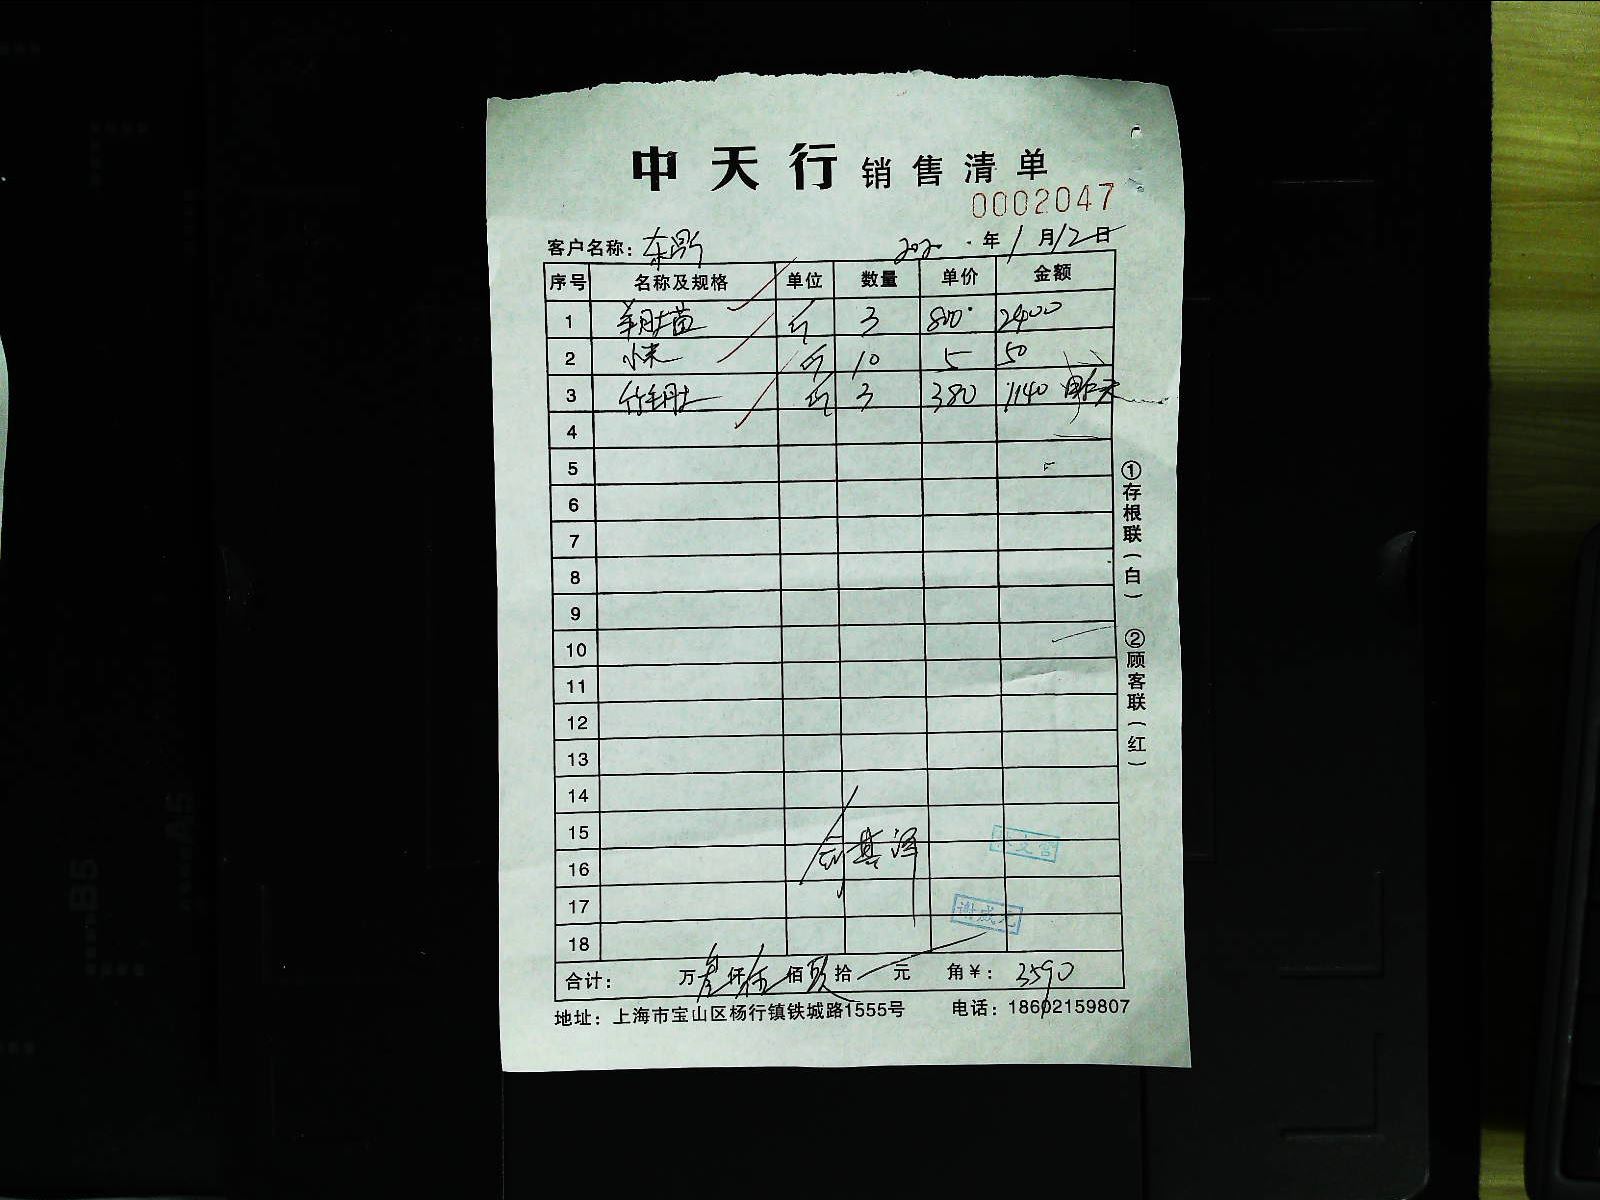 中天行 销售清单
0002047
客户名称：东昂 2020年1月12日
序号 名称及规格 单位 数量 单价 金额
1 羊肚菌 斤 3 800 2400
2 小米 斤 10 5 50
3 竹羊肚 斤 3 380 1140 昨天
4
5
6
7
8
9
10
11
12
13
14
15
16
17
18
谢成元
合计： 万叁仟伍佰玖拾 元 角￥：3590
地址：上海市宝山区杨行镇铁城路1555号 电话：18602159807
①存根联（白）
②顾客联（红）